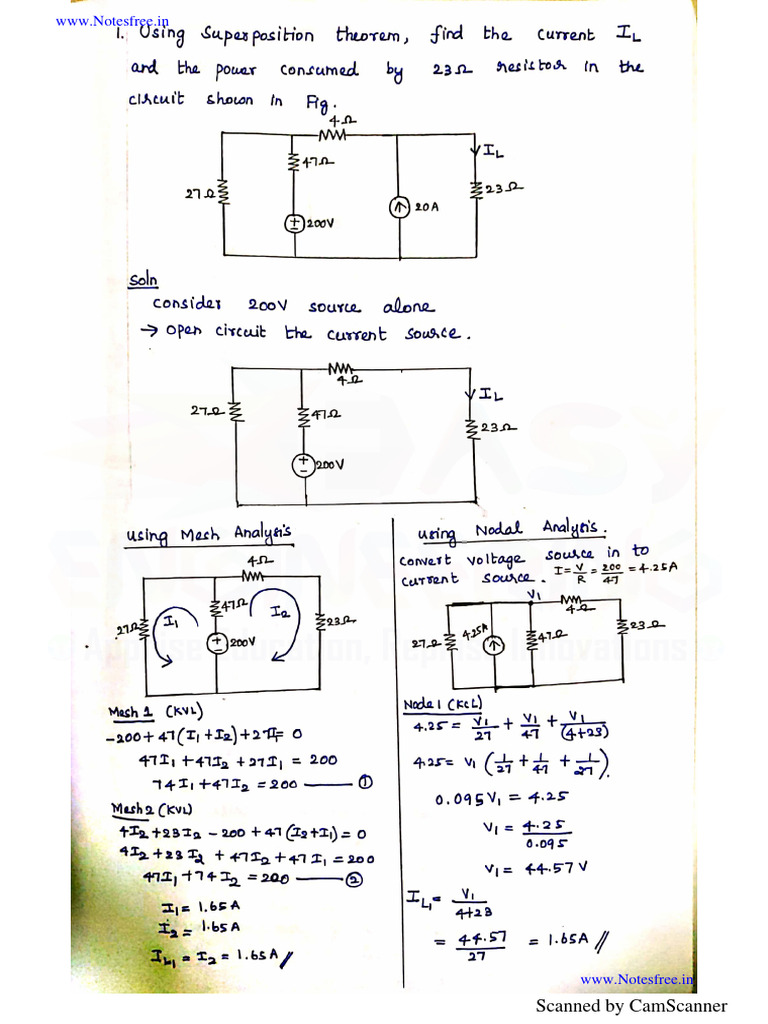 www.Notesfree.in
1. Using Superposition theorem, find the current IL
and the power consumed by 23Ω resistor in the
circuit shown in Fig.
4Ω
47Ω
IL
27Ω
23Ω
20A
+
-
200V
Soln
Consider 200V source alone
→ Open circuit the current source.
4Ω
IL
27Ω
47Ω
23Ω
+
-
200V
Using Mesh Analysis
4Ω
47Ω
I1
I2
27Ω
23Ω
+
-
200V
Mesh 1 (KVL)
-200+47(I1+I2)+27I1=0
47I1+47I2+27I1=200
74I1+47I2=200 —— ①
Mesh 2 (KVL)
4I2+23I2-200+47(I2+I1)=0
4I2+23I2+47I2+47I1=200
47I1+74I2=200 —— ②
I1=1.65A
I2=1.65A
IL1=I2=1.65A //
Using Nodal Analysis.
Convert voltage source in to
current source. I=V/R=200/47=4.25A
V1
4Ω
27Ω
4.25A
47Ω
23Ω
Node 1 (KCL)
4.25=V1/27+V1/47+V1/(4+23)
4.25=V1(1/27+1/47+1/27).
0.095V1=4.25
V1=4.25/0.095
V1=44.57V
IL1=V1/4+23
=44.57/27=1.65A //
www.Notesfree.in
Scanned by CamScanner